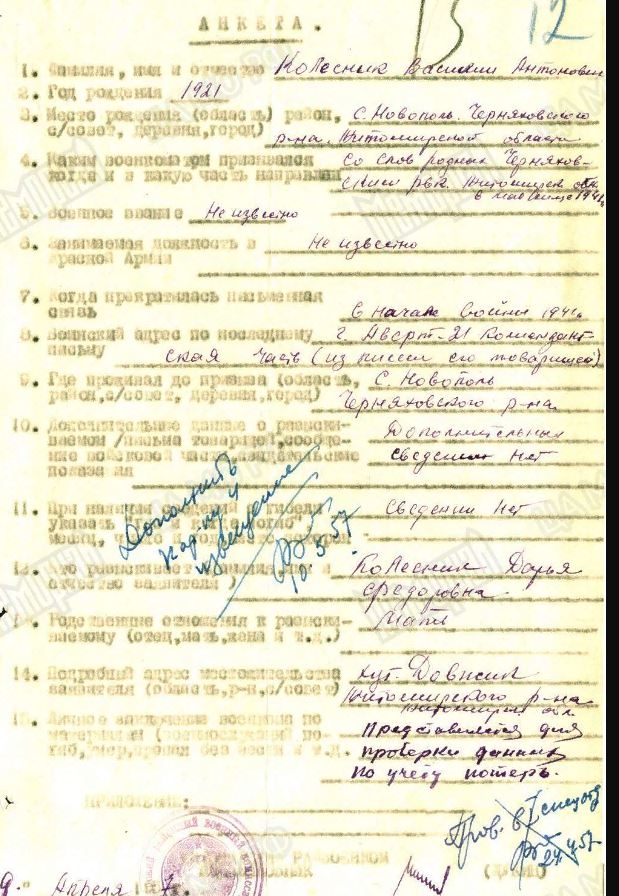 12
АНКЕТА.
1. Фамилия, имя и отчество Колесник Василий Антонович
2. Год рождения 1921
3. Место рождения (область) район, с. Новополь. Черняховского
с/совет, деревня, город) р-на. Житомирской области
4. Каким военкоматом призывался со слов родных Черняхов-
когда и в какую часть направлен ским рвк. Житомирск. обл.
в 1941г.
5. Военное звание Не известно
6. Занимаемая должность в Не известно
Красной Армии
7. Когда прекратилась письменная
связь в начале войны 1941г.
8. Воинский адрес по последнему г. 21 Комендант-
письму ская часть (из писем его товарищей)
9. Где проживал до призыва (область, с. Новополь
район, с/совет, деревня, город) Черняховского р-на
10. Дополнительные данные о разыски- Дополнительных
ваемом /письма товарищей, сообще- сведений нет
ние войсковой части, свидетельские
показания
11. При наличии сведений о гибели Сведений нет
указать
Дополнить
карт. и
извещение
10.5.57.
12. Кто разыскивает Колесник Дарья
отчество заявителя) Федоровна
13. Родственные отношения к разыски- Мать
ваемому (отец, мать, жена и т.д.)
14. Подробный адрес местожительства хут Довжик
заявителя (область, р-н, с/совет) Житомирского р-на
Житомирск. обл.
15. Личное заключение военкома по Представляется для
материалам проверки данных
погиб, умер, пропал без вести и т.д. по учёту потерь.
ПРИЛОЖЕНИЕ:
Пров. в
24.4.57
Апреля